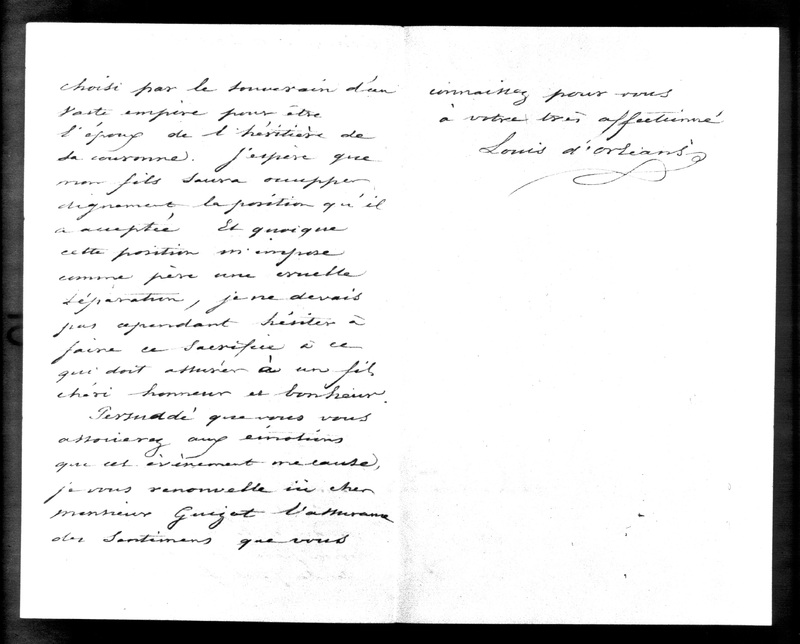 choisi par le souverain d'un
vaste empire pour être
l'époux de l'héritière de
sa couronne. J'espère que
mon fils saura occupper
dignement la position qu'il
a acceptée Et quoique
cette position m'impose
comme père une cruelle
séparation, je ne devais
pas cependant hésiter à
faire ce sacrifice à ce
qui doit assurér à un fils
chéri honneur et bonheur.
Persuadé que vous vous
associerez aux émotions
que cet évènement me cause,
je vous renouvelle ici cher
Monsieur Guizot l'assurance
des sentimens que vous
connaissez pour vous
à votre très affectionné
Louis d'Orléans